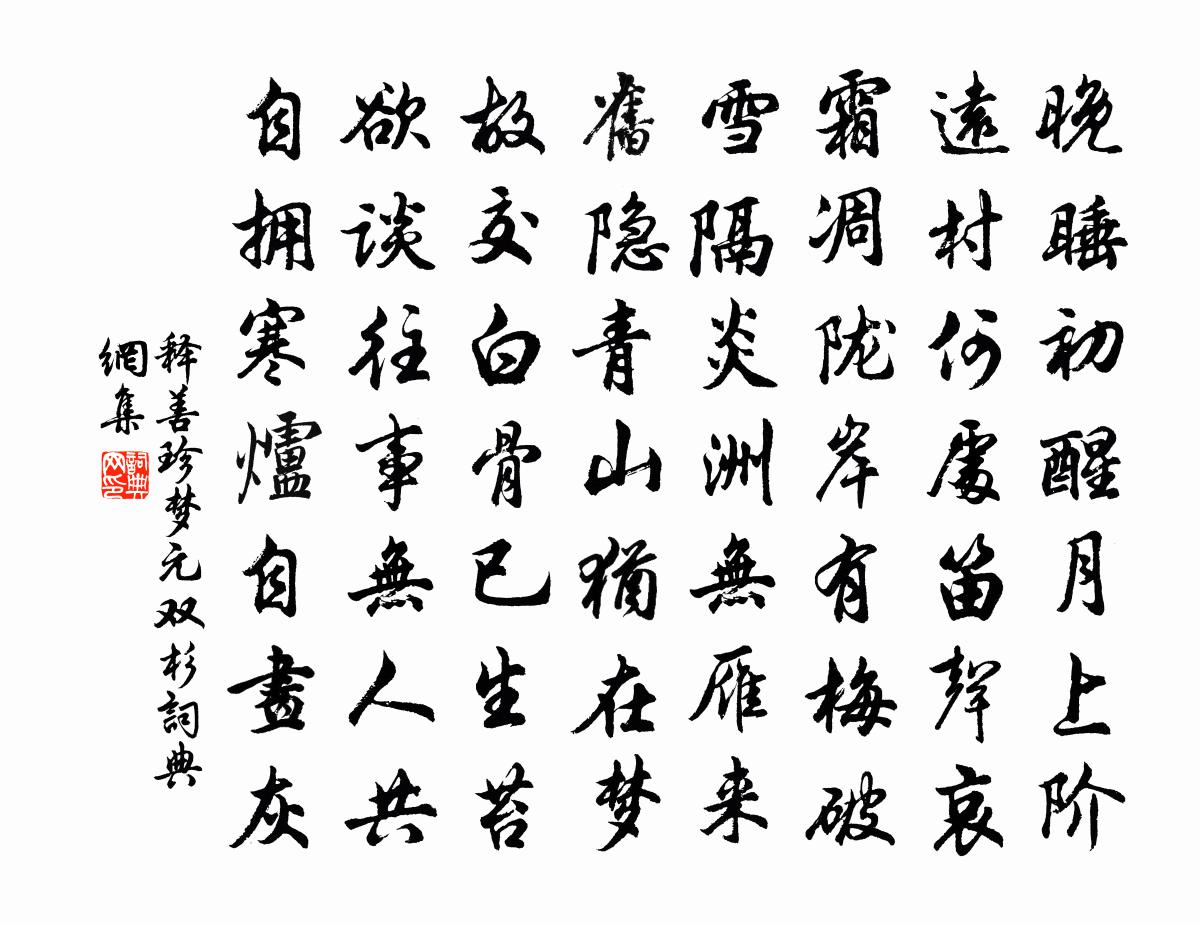 晚睡初醒月上阶
遠村何處笛聲哀
霜凋陇岸有梅破
雪隔炎洲無雁来
舊隐青山猶在梦
故交白骨已生苔
欲谈往事無人共
自拥寒爐自畫灰
释善珍梦元双杉詞典
網集
詞典网印